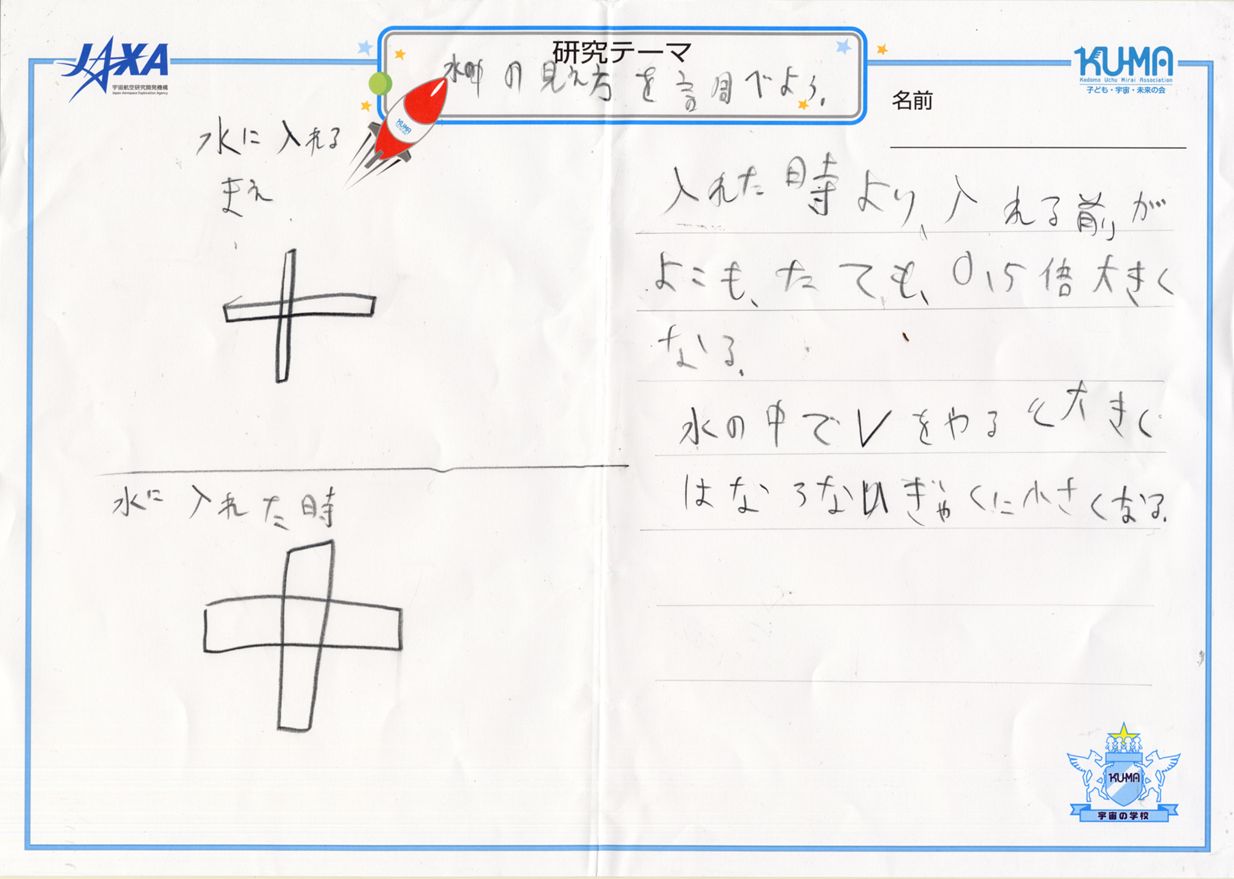 JAXA
宇宙航空研究開発機構
Japan Aerospace Exploration Agency
研究テーマ
水中の見え方を調べよう。
KU-MA
Kodomo Uchu Mirai Association
子ども・宇宙・未来の会
名前
KU-MA
水に入れる
まえ
水に入れた時
入れた時より、入れる前が
よこも、たても、0.15倍大きく
なる。
水の中でVをやると大きく
はならないぎゃくに小さくなる。
KU-MA
宇宙の学校